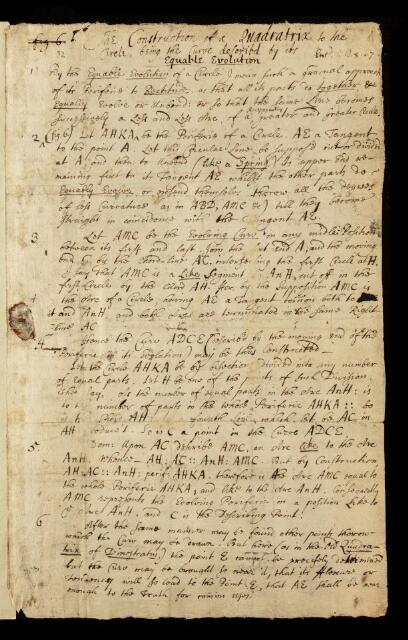 fig 6. The Construction of a Quadratrix to the
32 Circle being the Curve described by its
Equable Evolution
1 By the Equable Evolution of a Circle, I mean such a gradual approach
of its Periferie to Rectitude, as that all its parts do together &
Equally Evolve or Unbend: or so that the same Line becomes
successively a Less and Less Arc, of a greater and greater Circle.
2 (fig 6) Let AHKA be the Periferie of a Circle. AE a Tangent
to the point A. Let this Circular Line be suppos'd cut or divided
at A, and then to Unbend (like a Spring) its upper End re-
maining fixt to its Tangent AE whilst the other parts do
Equally Evolve, or unbend themselves through all the degrees
of Less Curvature, as in ABD, AMC &c) till they become
straight in coincidence with the Tangent AE.
3 Let AMC be the Evolving Curve in any middle Position
between its first and last. Join the first end A, and the moving
End C by the chord-line AC, intersecting the first Circle at H.
I say that AMC is a Like Segment to AnH, cut off in the
first Circle by the chord AH. For by the Supposition AMC is
4 the Arc of a Circle, having AE a Tangent common both to
it and AnH: and both Arcs are terminated in the same Right
Line AC
4 Hence the Curve ADCE (described by the moving end of the
Periferie in its Evolution) may be thus constructed.
Let the Circle AHKA be by bisection divided into any number
of equal parts. Let H be one of the points of such Division.
Then say, As the number of equal parts in the Arc AnH: is
to the number of parts in the whole Periferie AHKA :: so
is the Chord AH: to a fourth Line, which let be AC in
AH So is C a point in the Curve ADCE.
5 Dem: Upon AC describe AMC, an Arc like to the Arc
AnH. Whence AH: AC :: AnH: AMC. But by Construction
AH: AC :: AnH: perif: AHKA, therefore is the Arc AMC equal to
the whole Periferie AHKA, and like to the Arc AnH, consequently
AMC represents the Evolving Periferie in a position Like to
the Arc AnH, and C is the Describing Point.
6 After the same manner may be found other points through
which the Curve may be drawn. But here (as in the Old Quadra-
trix of Dinostratus) the point E cannot be precisely determined
but the Curve may be brought so near it, that its flexure or
tendency will so lead to the Point E, that AE shall be near
enough to the Truth for common uses.